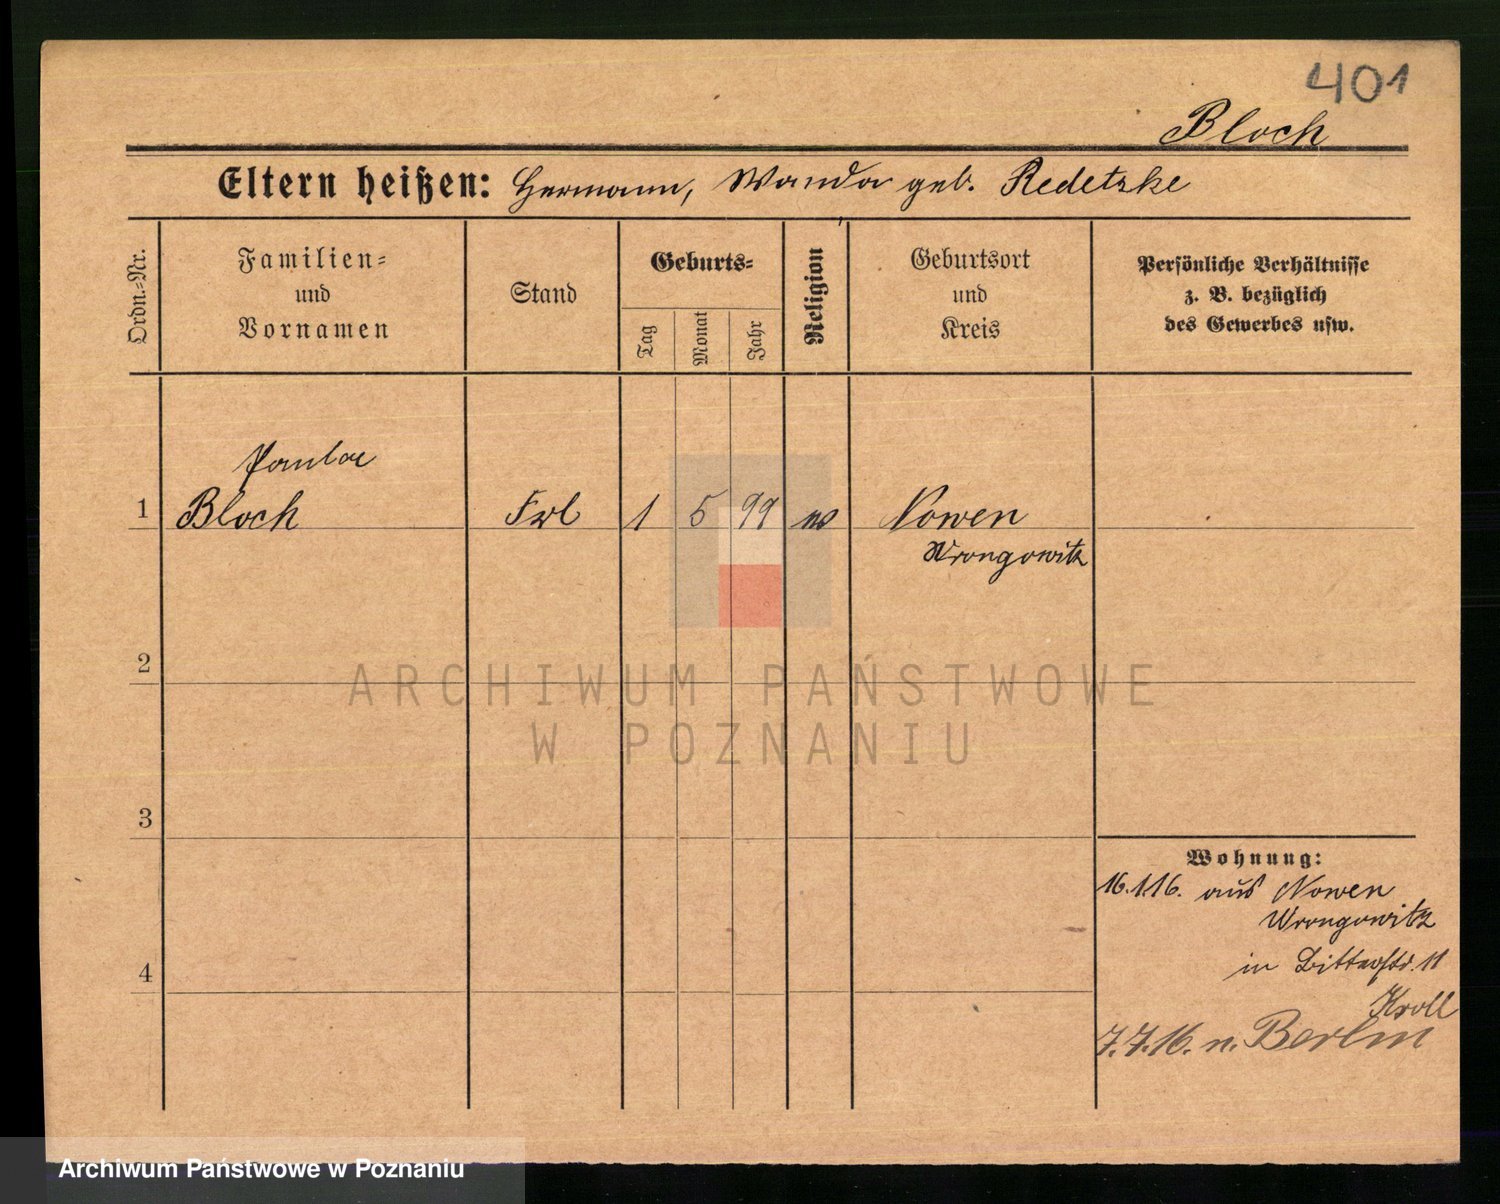 401
Bloch
Eltern heißen: Hermann, Wanda geb. Redetzke
Ordn.=Nr.
Familien=
und
Vornamen
Stand
Geburts=
Tag
Monat
Jahr
Religion
Geburtsort
und
Kreis
Persönliche Verhältnisse
z. B. bezüglich
des Gewerbes usw.
Paula
1 Bloch Frl 1 5 99 Nowen
Wrongowitz
2
3
4
Wohnung:
16.1.16. aus Nowen
Wrongowitz
in Bitterstr. 11
Kroll
7.7.16. n. Berlin
ARCHIWUM PAŃSTWOWE
W POZNANIU
Archiwum Państwowe w Poznaniu